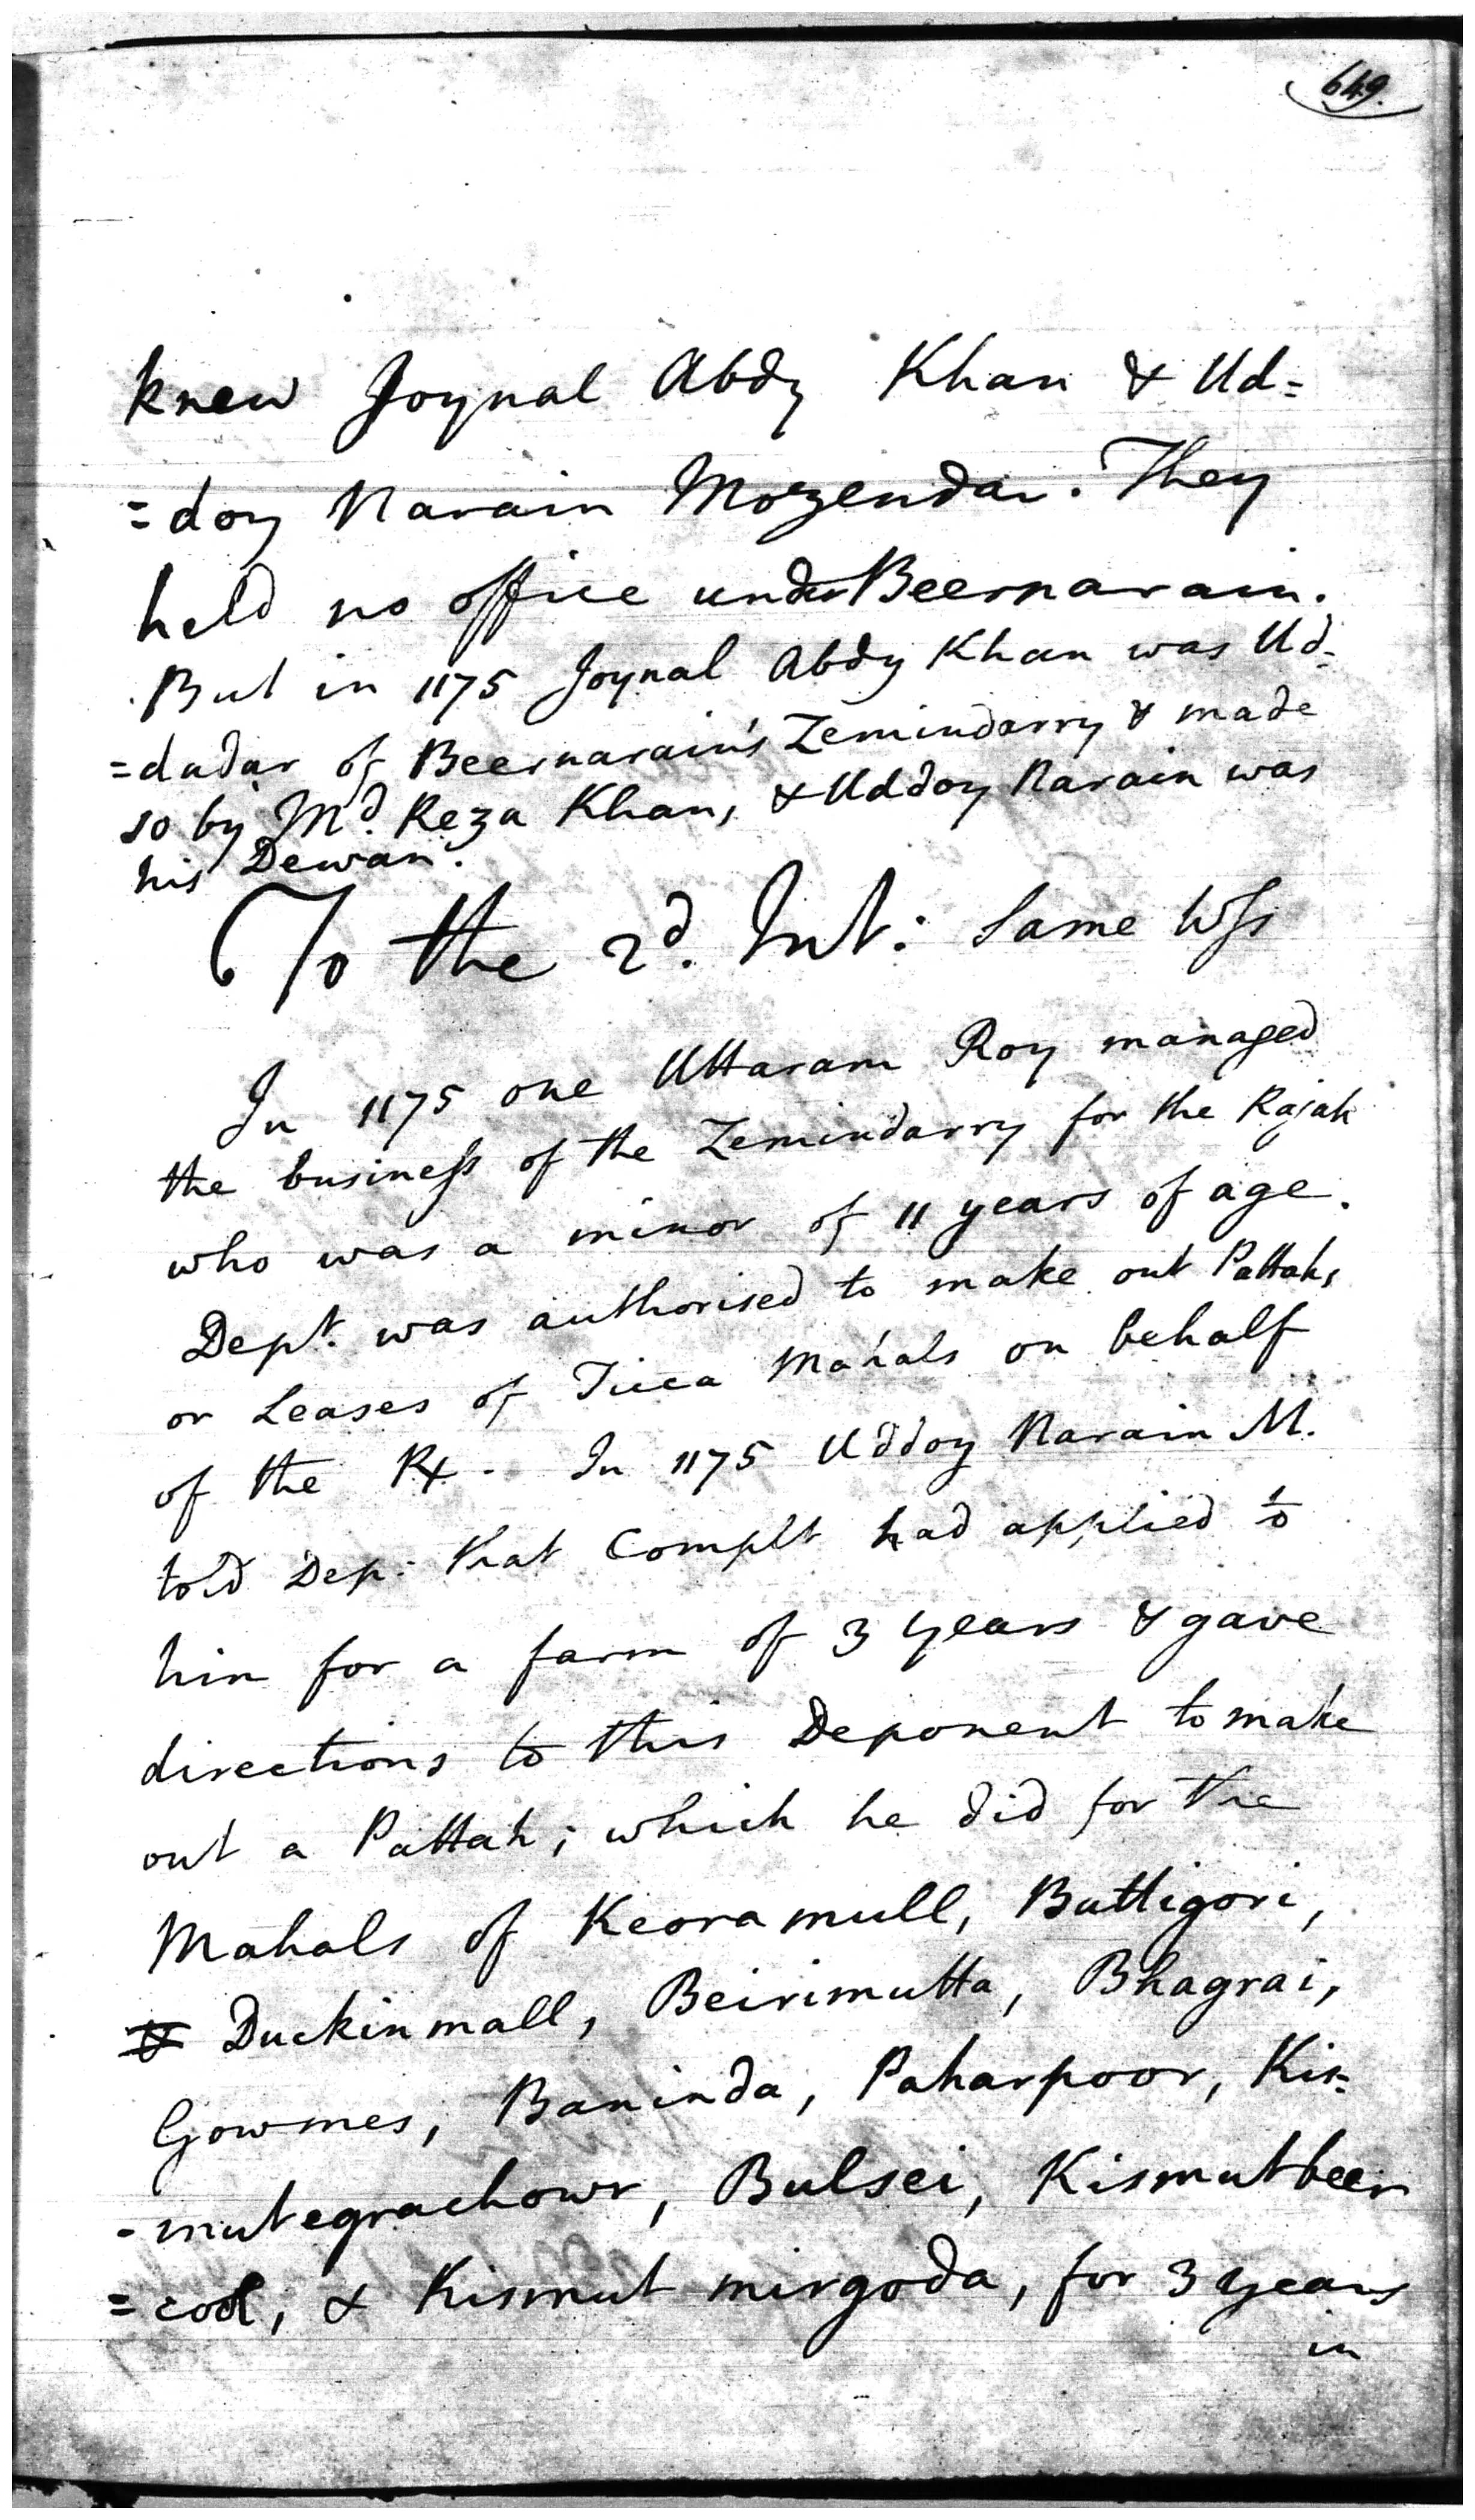 649.
knew Joynal Abdy Khan & Ud=
=doy Narain Mozendar. They
held no office under Beernarain.
But in 1175 Joynal Abdy Khan was Ud=
=dadar of Beernarain's Zemindarry & made
so by Md. Reza Khan, & Uddoy Narain was
his Dewan.
To the 2d. Int: Same Wss
In 1175 one Uttaram Roy managed
the business of the Zemindarry for the Rajah
who was a minor of 11 years of age.
Dept. was authorised to make out Pattahs
or Leases of Ticca Mahals on behalf
of the R. In 1175 Uddoy Narain M.
told Dep: that Complt had applied to
him for a farm of 3 years & gave
directions to this Deponent to make
out a Pattah; which he did for the
Mahals of Keoramull, Buttigori,
& Duckinmall, Beirimutta, Bhagrai,
Gowmes, Baninda, Paharpoor, Kis=
-mutegrachowr, Bulsei, Kismutbeer
=cool, & Kismut mirgoda, for 3 years
in